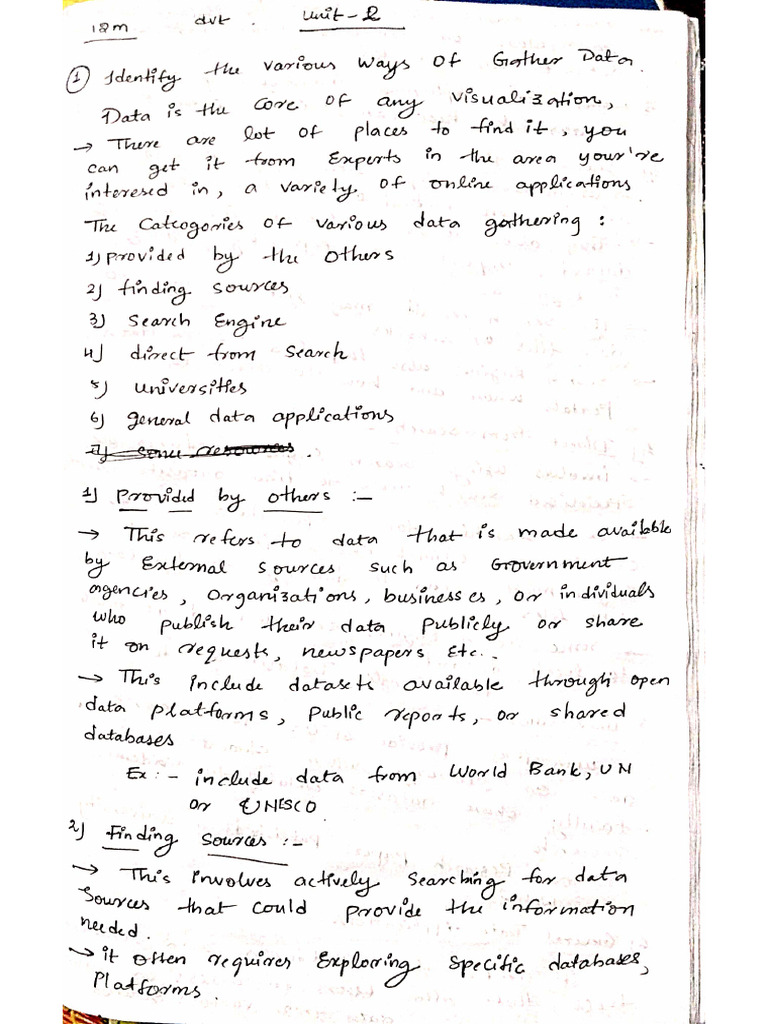 12m dvt. Unit-2
① Identify the various ways of Gather Data.
Data is the core of any visualization,
→ There are lot of places to find it, you
can get it from Experts in the area your're
interesed in, a variety of online applications
The Cateogories of various data gathering :
1) provided by the others
2) finding sources
3) Search Engine
4) direct from Search
5) universities
6) general data applications
7) some resources.
1) Provided by others :-
→ This refers to data that is made available
by External sources such as Government
agencies, organizations, businesses, or individuals
who publish their data publicly or share
it on requests, newspapers Etc..
→ This include datasets available through open
data platforms, public reports, or shared
databases
Ex:- include data from World Bank, UN
or UNESCO.
2) Finding Sources :-
→ This involves actively searching for data
Sources that could provide the information
needed.
→ it often requires Exploring specific databases,
Platforms.